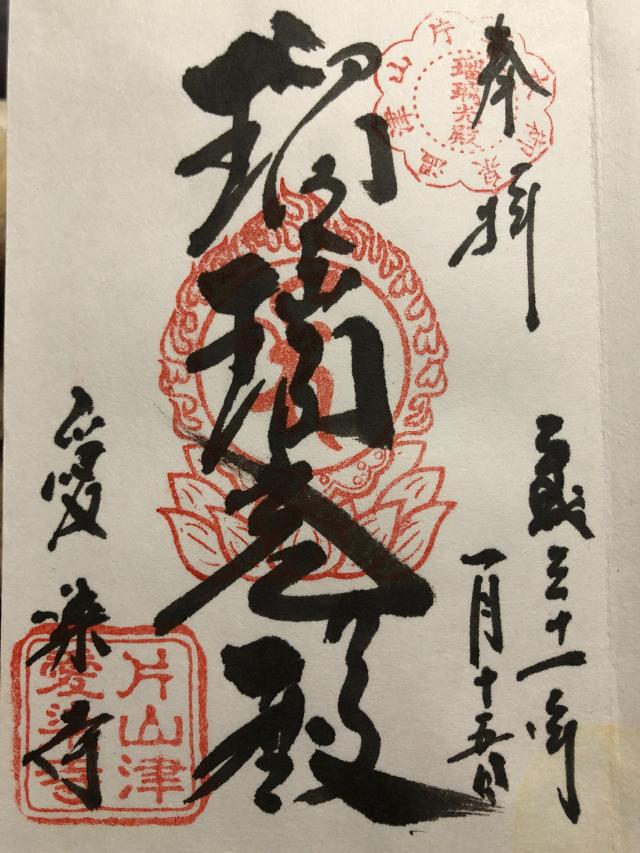 奉拝
平成三十一年
一月十五日
片山津温泉
瑠璃光殿
瑠璃光殿
愛染寺
片山津
愛染寺